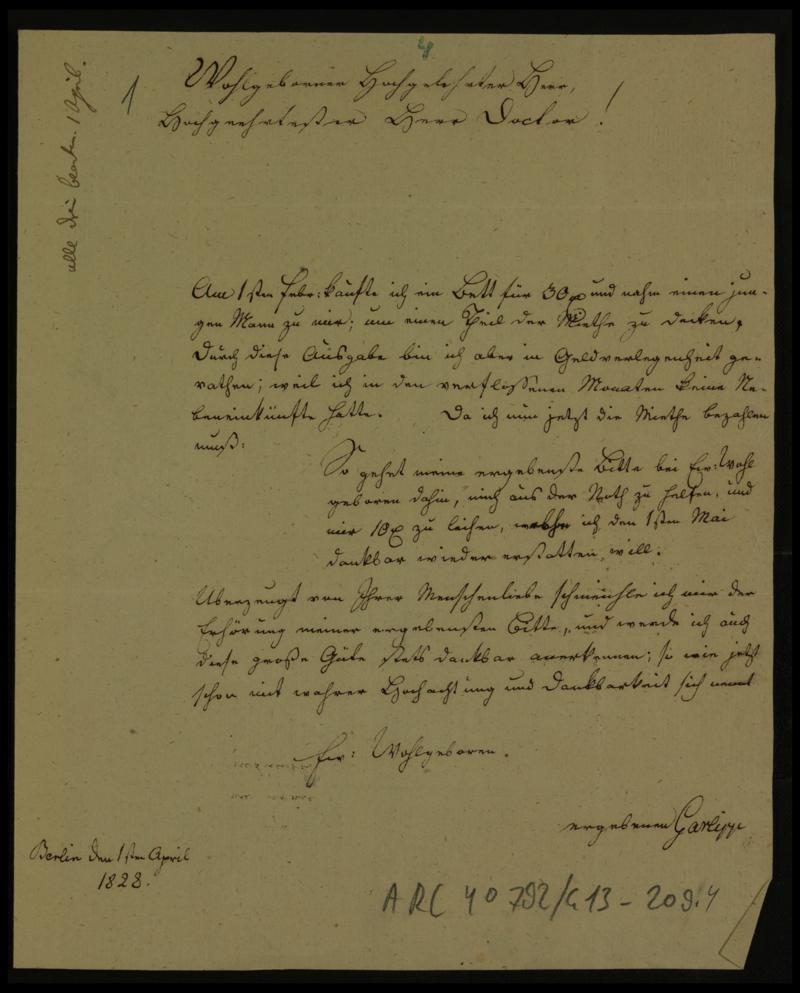 4
1
alle drei beantw. 1 April.
Wohlgeborner Hochgelehrter Herr,
Hochgeehrtester Herr Doctor!
Am 1sten Febr: kaufte ich ein Bett für 30 und nahm einen jun-
gen Mann zu mir; um einen Theil der Miethe zu decken,
durch diese Ausgabe bin ich aber in Geldverlegenheit ge-
rathen; weil ich in den verflossenen Monaten keine Ne-
beneinkünfte hatte. Da ich nun jetzt die Miethe bezahlen
muß:
So gehet meine ergebenste Bitte bei Ew: Wohl
geboren dahin, mich aus der Noth zu helfen, und
mir 10 zu leihen, welche ich den 1sten Mai
dankbar wieder erstatten will.
Überzeugt von Ihrer Menschenliebe schmeichle ich mir der
Erhörung meiner ergebensten Bitte, und werde ich auch
diese große Güte stets dankbar anerkennen; so wie jetzt
schon mit wahrer Hochachtung und Dankbarkeit sich nennt
Ew: Wohlgeboren.
ergebenen Garlipp
Berlin den 1sten April
1828.
ARC 4º 792/G13-209.4